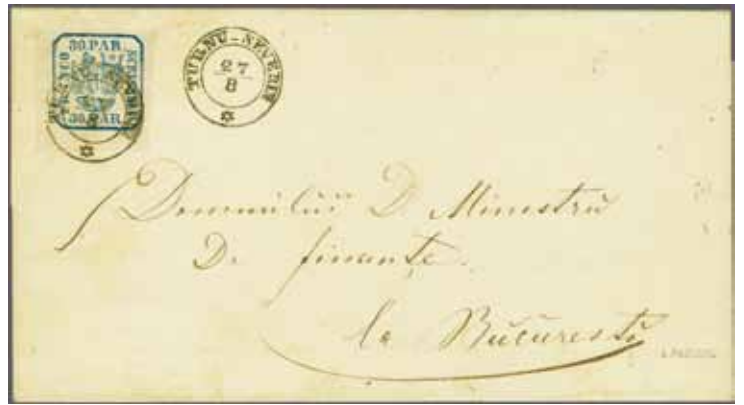 30.PAR
FRANCO
SCRISOREI
30.PAR
TURNU-SEVERIN
27
8
Domnului D. Ministru
De finanțe.
la Bucuresti